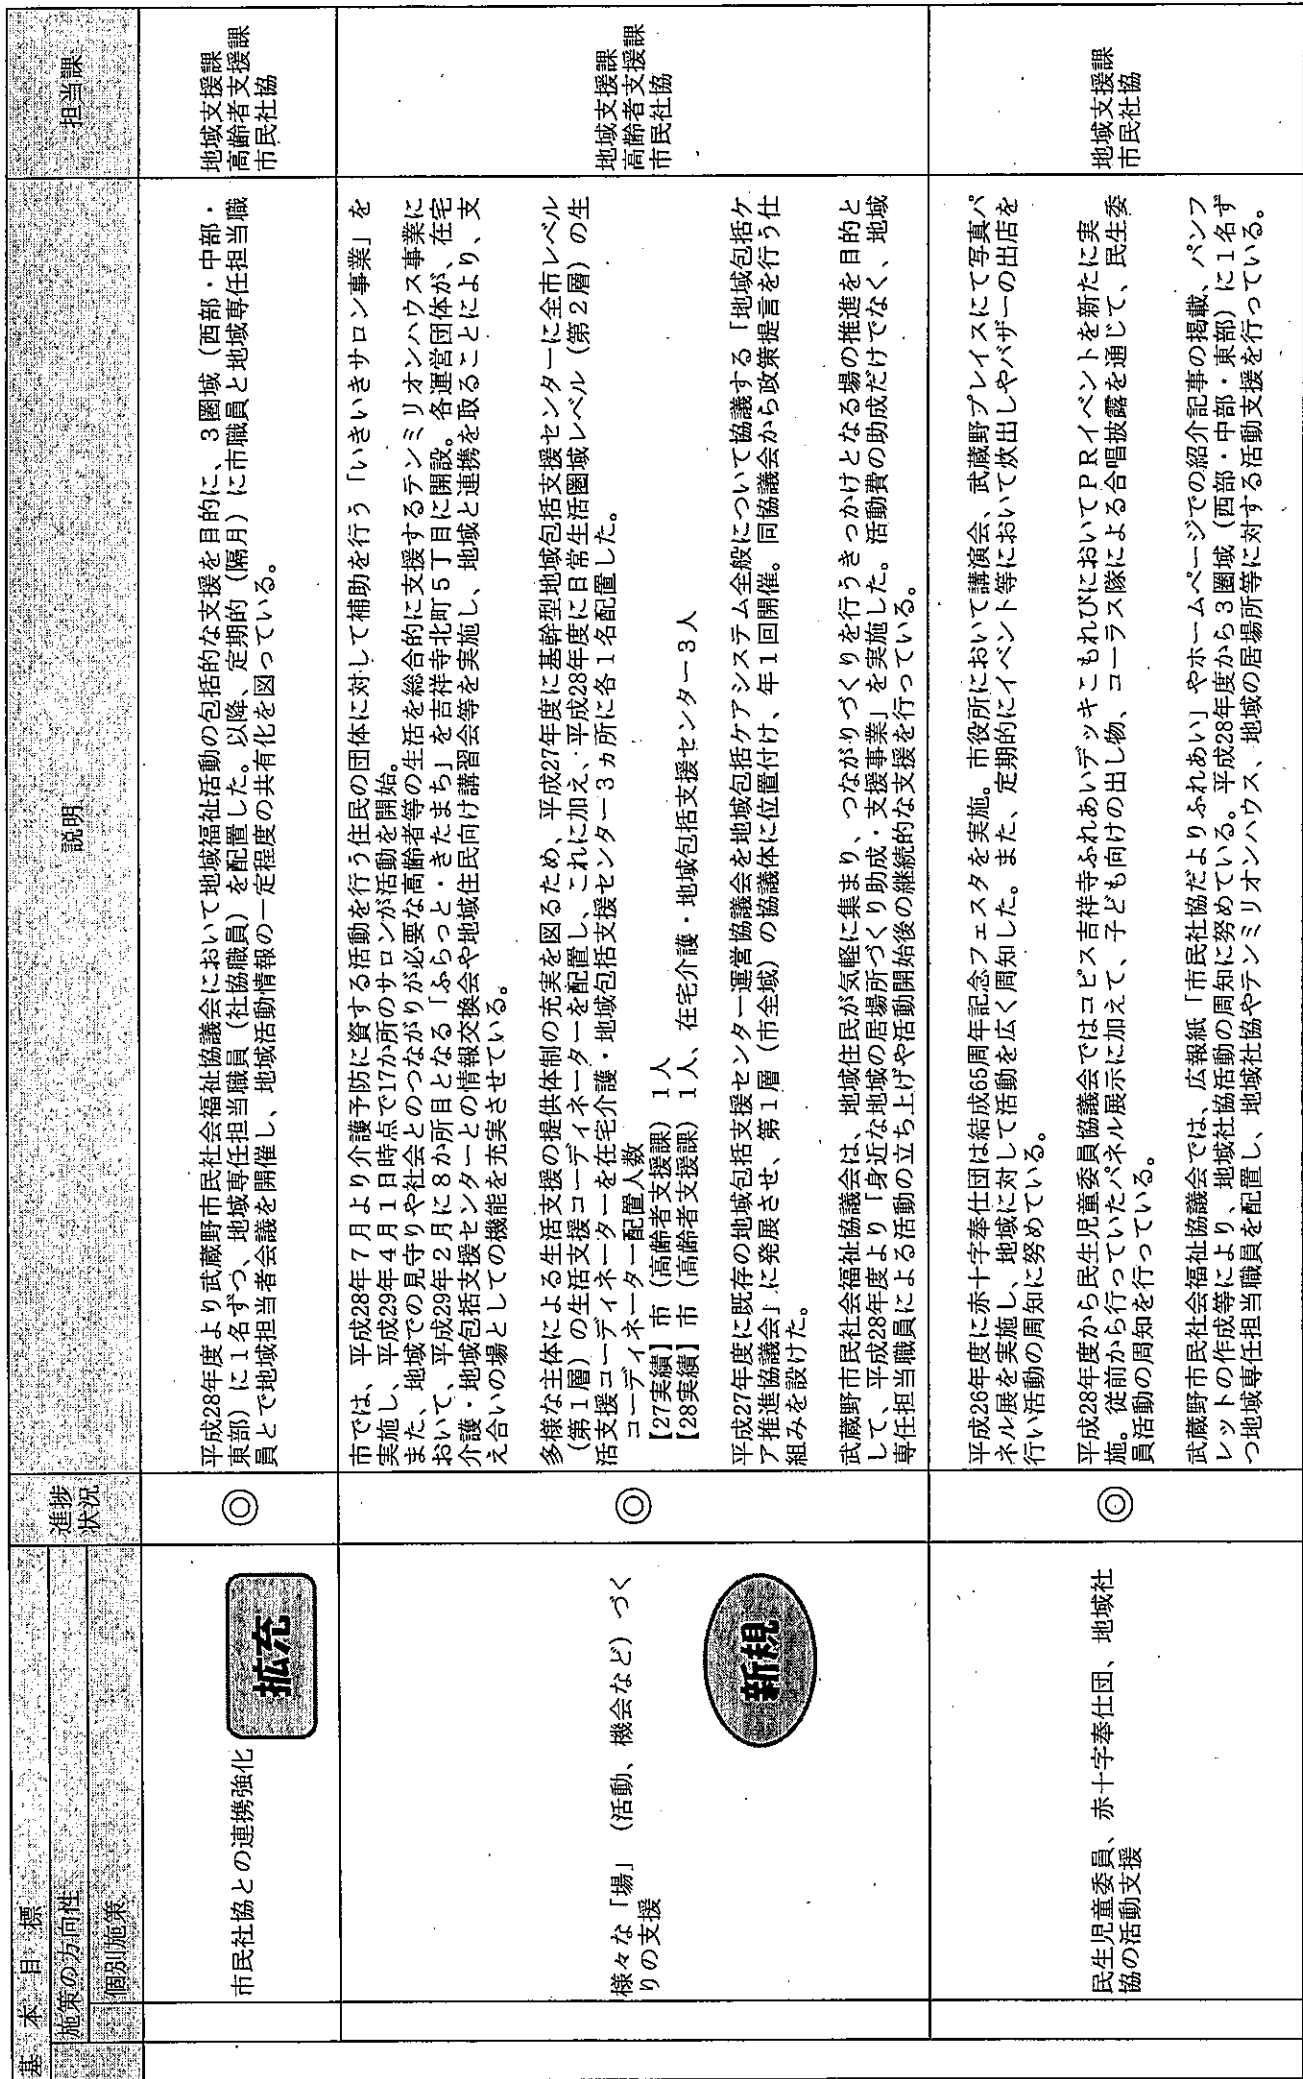 基本目標
施策の方向性
個別施策
進捗
状況
説明
担当課
市民社協との連携強化
拡充
◎
平成28年度より武蔵野市民社会福祉協議会において地域福祉活動の包括的な支援を目的に、3圏域（西部・中部・
東部）に1名ずつ、地域専任担当職員（社協職員）を配置した。以降、定期的（隔月）に市職員と地域専任担当職
員とで地域担当者会議を開催し、地域活動情報の一定程度の共有化を図っている。
地域支援課
高齢者支援課
市民社協
様々な「場」（活動、機会など）づく
りの支援
新規
◎
市では、平成28年7月より介護予防に資する活動を行う住民の団体に対して補助を行う「いきいきサロン事業」を
実施し、平成29年4月1日時点で17か所のサロンが活動を開始。
また、地域での見守りや社会とのつながりが必要な高齢者等の生活を総合的に支援するテンミリオンハウス事業に
おいて、平成29年2月に8か所目となる「ふらっと・きたまち」を吉祥寺北町5丁目に開設。各運営団体が、在宅
介護・地域包括支援センターとの情報交換会や地域住民向け講習会等を実施し、地域と連携を取ることにより、支
え合いの場としての機能を充実させている。
多様な主体による生活支援の提供体制の充実を図るため、平成27年度に基幹型地域包括支援センターに全市レベル
（第1層）の生活支援コーディネーターを配置し、これに加え、平成28年度に日常生活圏域レベル（第2層）の生
活支援コーディネーターを在宅介護・地域包括支援センター3ヵ所に各1名配置した。
コーディネーター配置人数
【27実績】市（高齢者支援課）1人
【28実績】市（高齢者支援課）1人、在宅介護・地域包括支援センター3人
平成27年度に既存の地域包括支援センター運営協議会を地域包括ケアシステム全般について協議する「地域包括ケ
ア推進協議会」に発展させ、第1層（市全域）の協議体に位置付け、年1回開催。同協議会から政策提言を行う仕
組みを設けた。
武蔵野市民社会福祉協議会は、地域住民が気軽に集まり、つながりづくりを行うきっかけとなる場の推進を目的と
して、平成28年度より「身近な地域の居場所づくり助成・支援事業」を実施した。活動費の助成だけでなく、地域
専任担当職員による活動の立ち上げや活動開始後の継続的な支援を行っている。
地域支援課
高齢者支援課
市民社協
民生児童委員、赤十字奉仕団、地域社
協の活動支援
◎
平成26年度に赤十字奉仕団は結成65周年記念フェスタを実施。市役所において講演会、武蔵野プレイスにて写真パ
ネル展を実施し、地域に対して活動を広く周知した。また、定期的にイベント等において炊出しやバザーの出店を
行い活動の周知に努めている。
平成28年度から民生児童委員協議会ではコピス吉祥寺ふれあいデッキこもれびにおいてPRイベントを新たに実
施。従前から行っていたパネル展示に加えて、子ども向けの出し物、コーラス隊による合唱披露を通じて、民生委
員活動の周知を行っている。
武蔵野市民社会福祉協議会では、広報紙「市民社協だよりふれあい」やホームページでの紹介記事の掲載、パンフ
レットの作成等により、地域社協活動の周知に努めている。平成28年度から3圏域（西部・中部・東部）に1名ず
つ地域専任担当職員を配置し、地域社協やテンミリオンハウス、地域の居場所等に対する活動支援を行っている。
地域支援課
市民社協